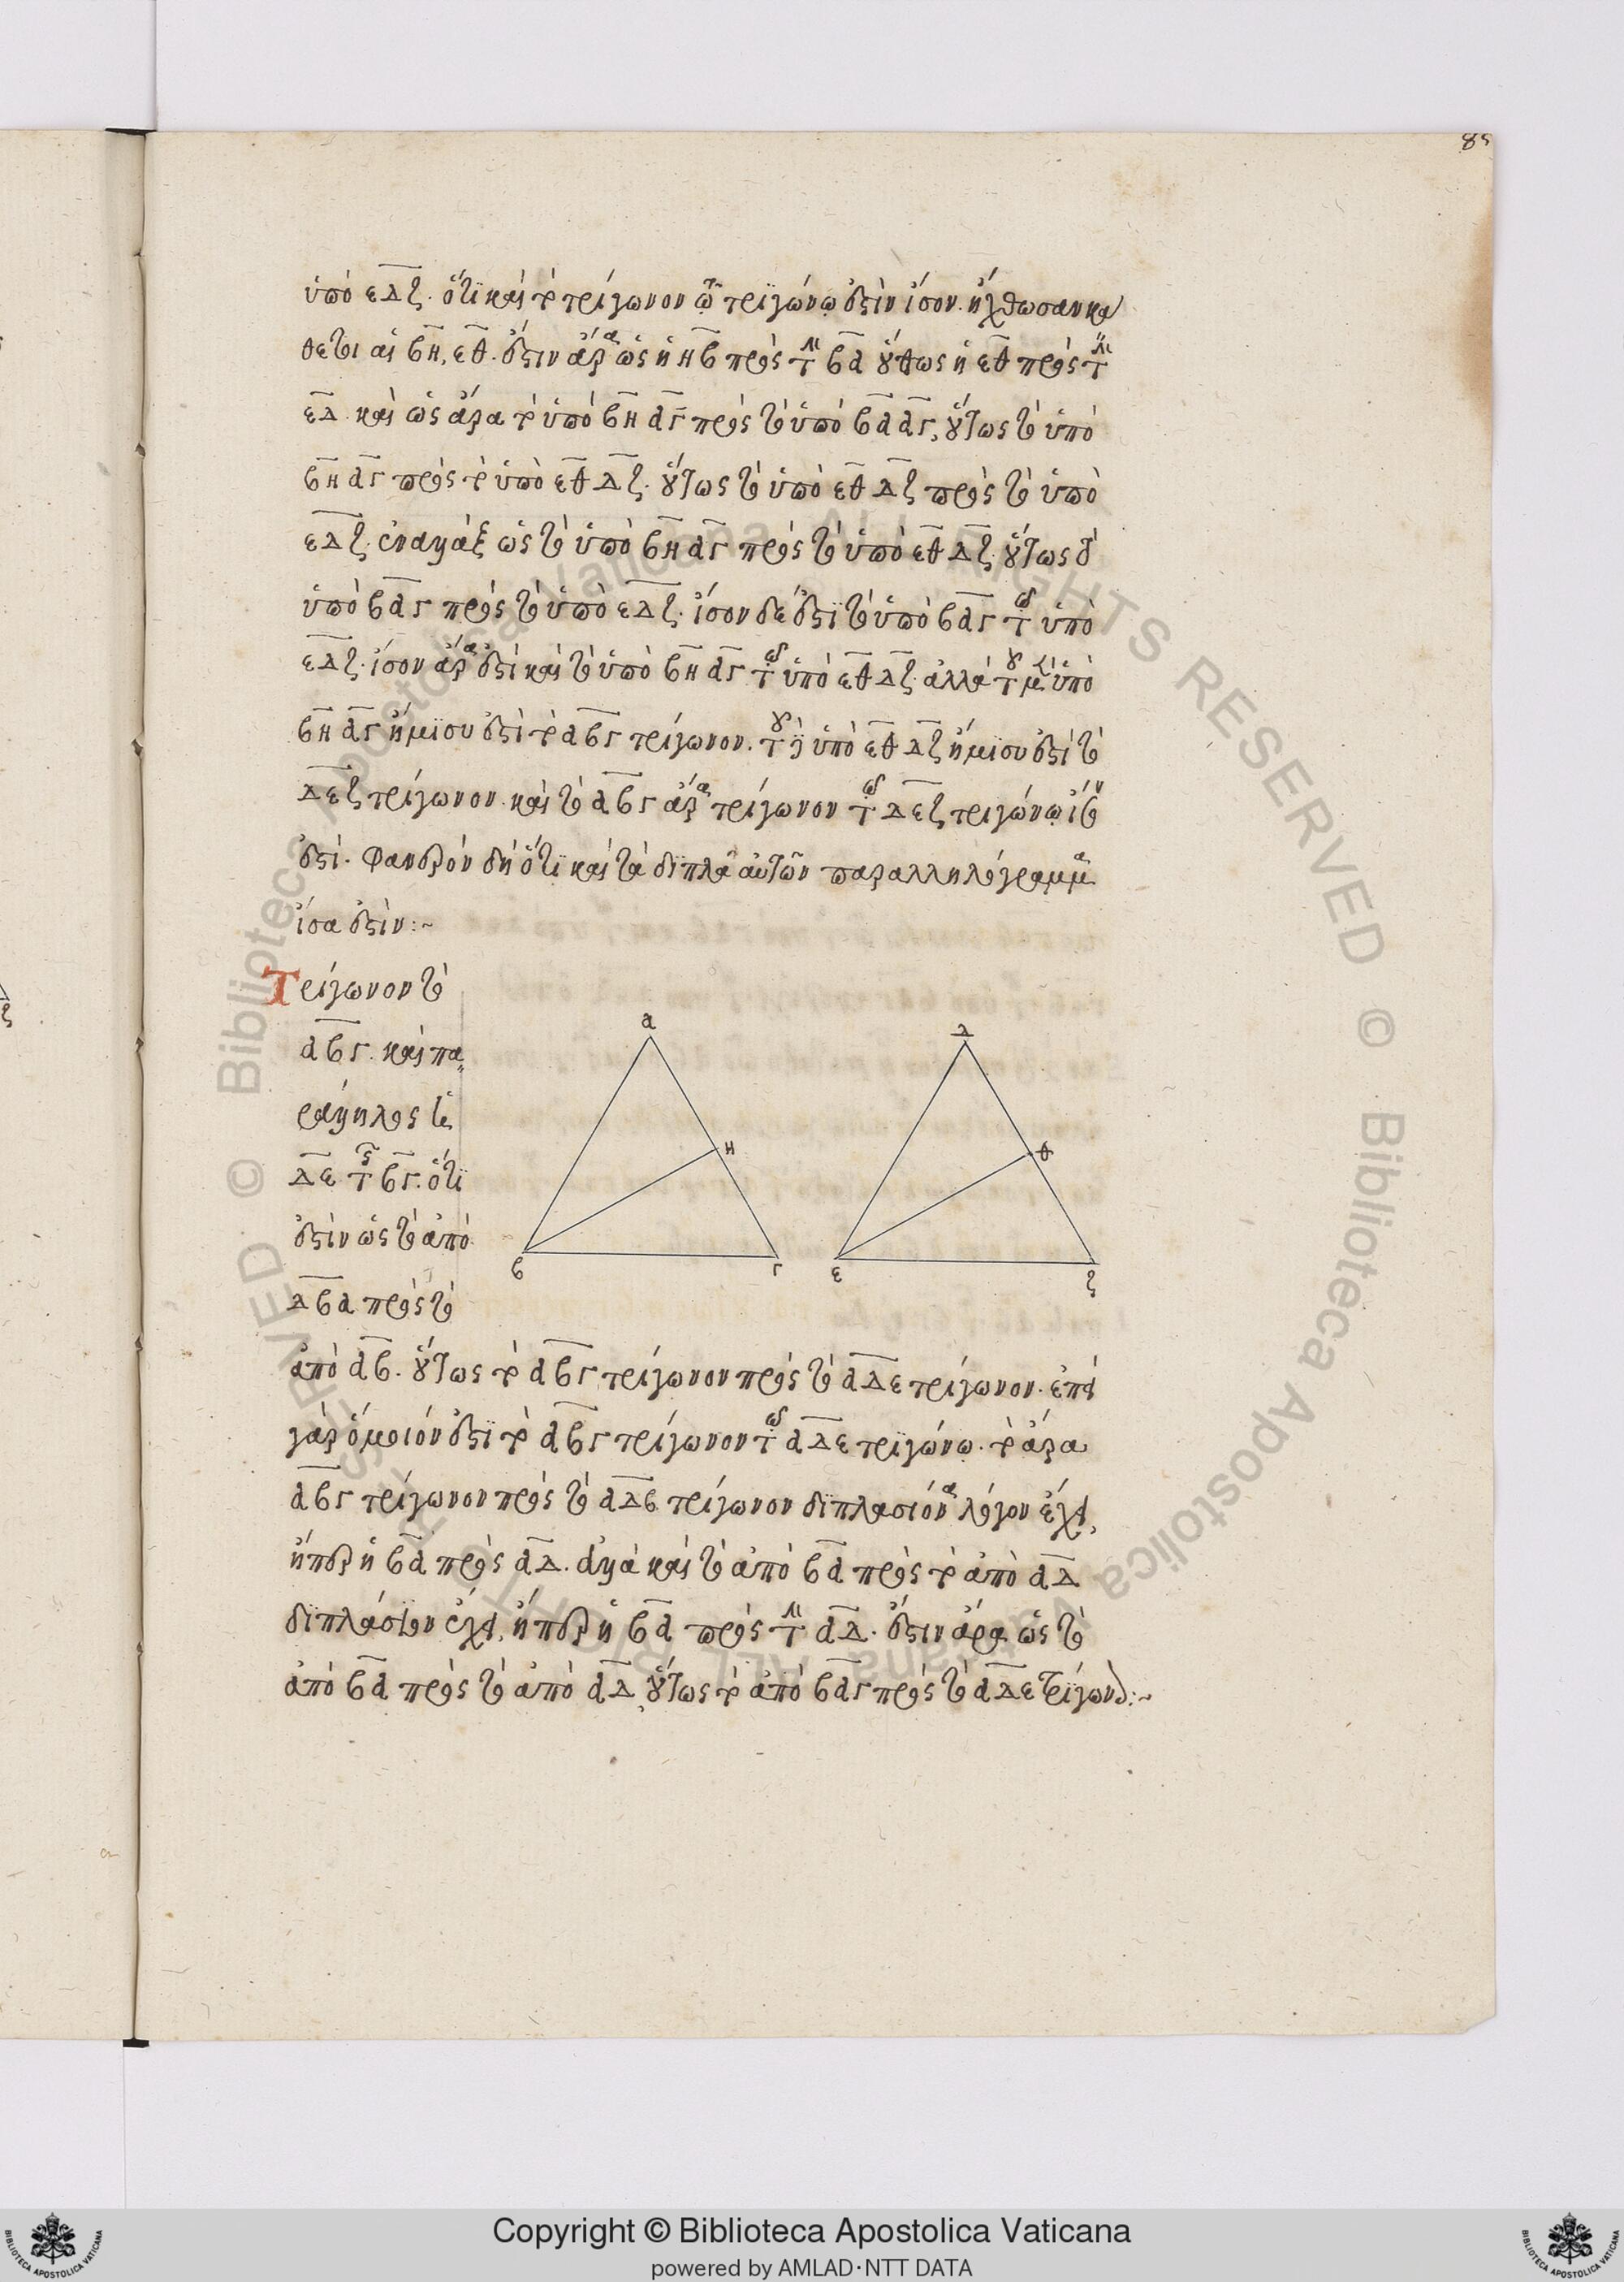 85
ὑπὸ εδζ. ὅτι καὶ τὸ τρίγωνον τῷ τριγώνῳ ἐστὶν ἴσον. ἤχθωσαν κά
θετοι αἱ βη, εθ. ἔστιν ἄρα ὡς ἡ ηβ πρὸς τὴν βα οὕτως ἡ εθ πρὸς τὴν
εδ. καὶ ὡς ἄρα τὸ ὑπὸ βη αγ πρὸς τὸ ὑπὸ βα αγ, οὕτως τὸ ὑπὸ
βη αγ πρὸς τὸ ὑπὸ εθ δζ. οὕτως τὸ ὑπὸ εθ δζ πρὸς τὸ ὑπὸ
εδζ. ἐναλλὰξ ὡς τὸ ὑπὸ βη αγ πρὸς τὸ ὑπὸ εθ δζ. οὕτως τὸ
ὑπὸ βαγ πρὸς τὸ ὑπὸ εδζ. ἴσον δέ ἐστι τὸ ὑπὸ βαγ τῷ ὑπὸ
εδζ. ἴσον ἄρα ἐστὶ καὶ τὸ ὑπὸ βη αγ τῷ ὑπὸ εθ δζ. ἀλλὰ τοῦ μὲν ὑπὸ
βη αγ ἥμισυ ἐστὶ τὸ αβγ τρίγωνον. τοῦ δὲ ὑπὸ εθ δζ ἥμισυ ἐστὶ τὸ
δεζ τρίγωνον. καὶ τὸ αβγ ἄρα τρίγωνον τῷ δεζ τριγώνῳ ἴσον
ἐστί. φανερὸν δὴ ὅτι καὶ τὰ διπλᾶ αὐτῶν παραλληλόγραμμα
ἴσα ἐστίν:~
Τρίγωνον τὸ
αβγ. καὶ πα
ράλληλος
δε τῆς βγ. ὅτι
ἐστὶν ὡς τὸ ἀπὸ
δβα πρὸς τὸ
α
η
β
γ
δ
θ
ε
ζ
ἀπὸ αβ. οὕτως τὸ αβγ τρίγωνον πρὸς τὸ αδε τρίγωνον. ἐπεὶ
γὰρ ὅμοιόν ἐστι τὸ αβγ τρίγωνον τῷ αδε τριγώνῳ. τὸ ἄρα
αβγ τρίγωνον πρὸς τὸ αδε τρίγωνον διπλασίονα λόγον ἔχει,
ἤπερ ἡ βα πρὸς αδ. ἀλλὰ καὶ τὸ ἀπὸ βα πρὸς τὸ ἀπὸ αδ
διπλάσιον ἔχει, ἤπερ ἡ βα πρὸς τὴν αδ. ἔστιν ἄρα ὡς τὸ
ἀπὸ βα πρὸς τὸ ἀπὸ αδ, οὕτως τὸ ἀπὸ βαγ πρὸς τὸ αδε τρίγωνον:~
© Biblioteca Apostolica Vaticana. ALL RIGHTS RESERVED
Copyright © Biblioteca Apostolica Vaticana
powered by AMLAD·NTT DATA
BIBLIOTECA APOSTOLICA VATICANA
BIBLIOTECA APOSTOLICA VATICANA